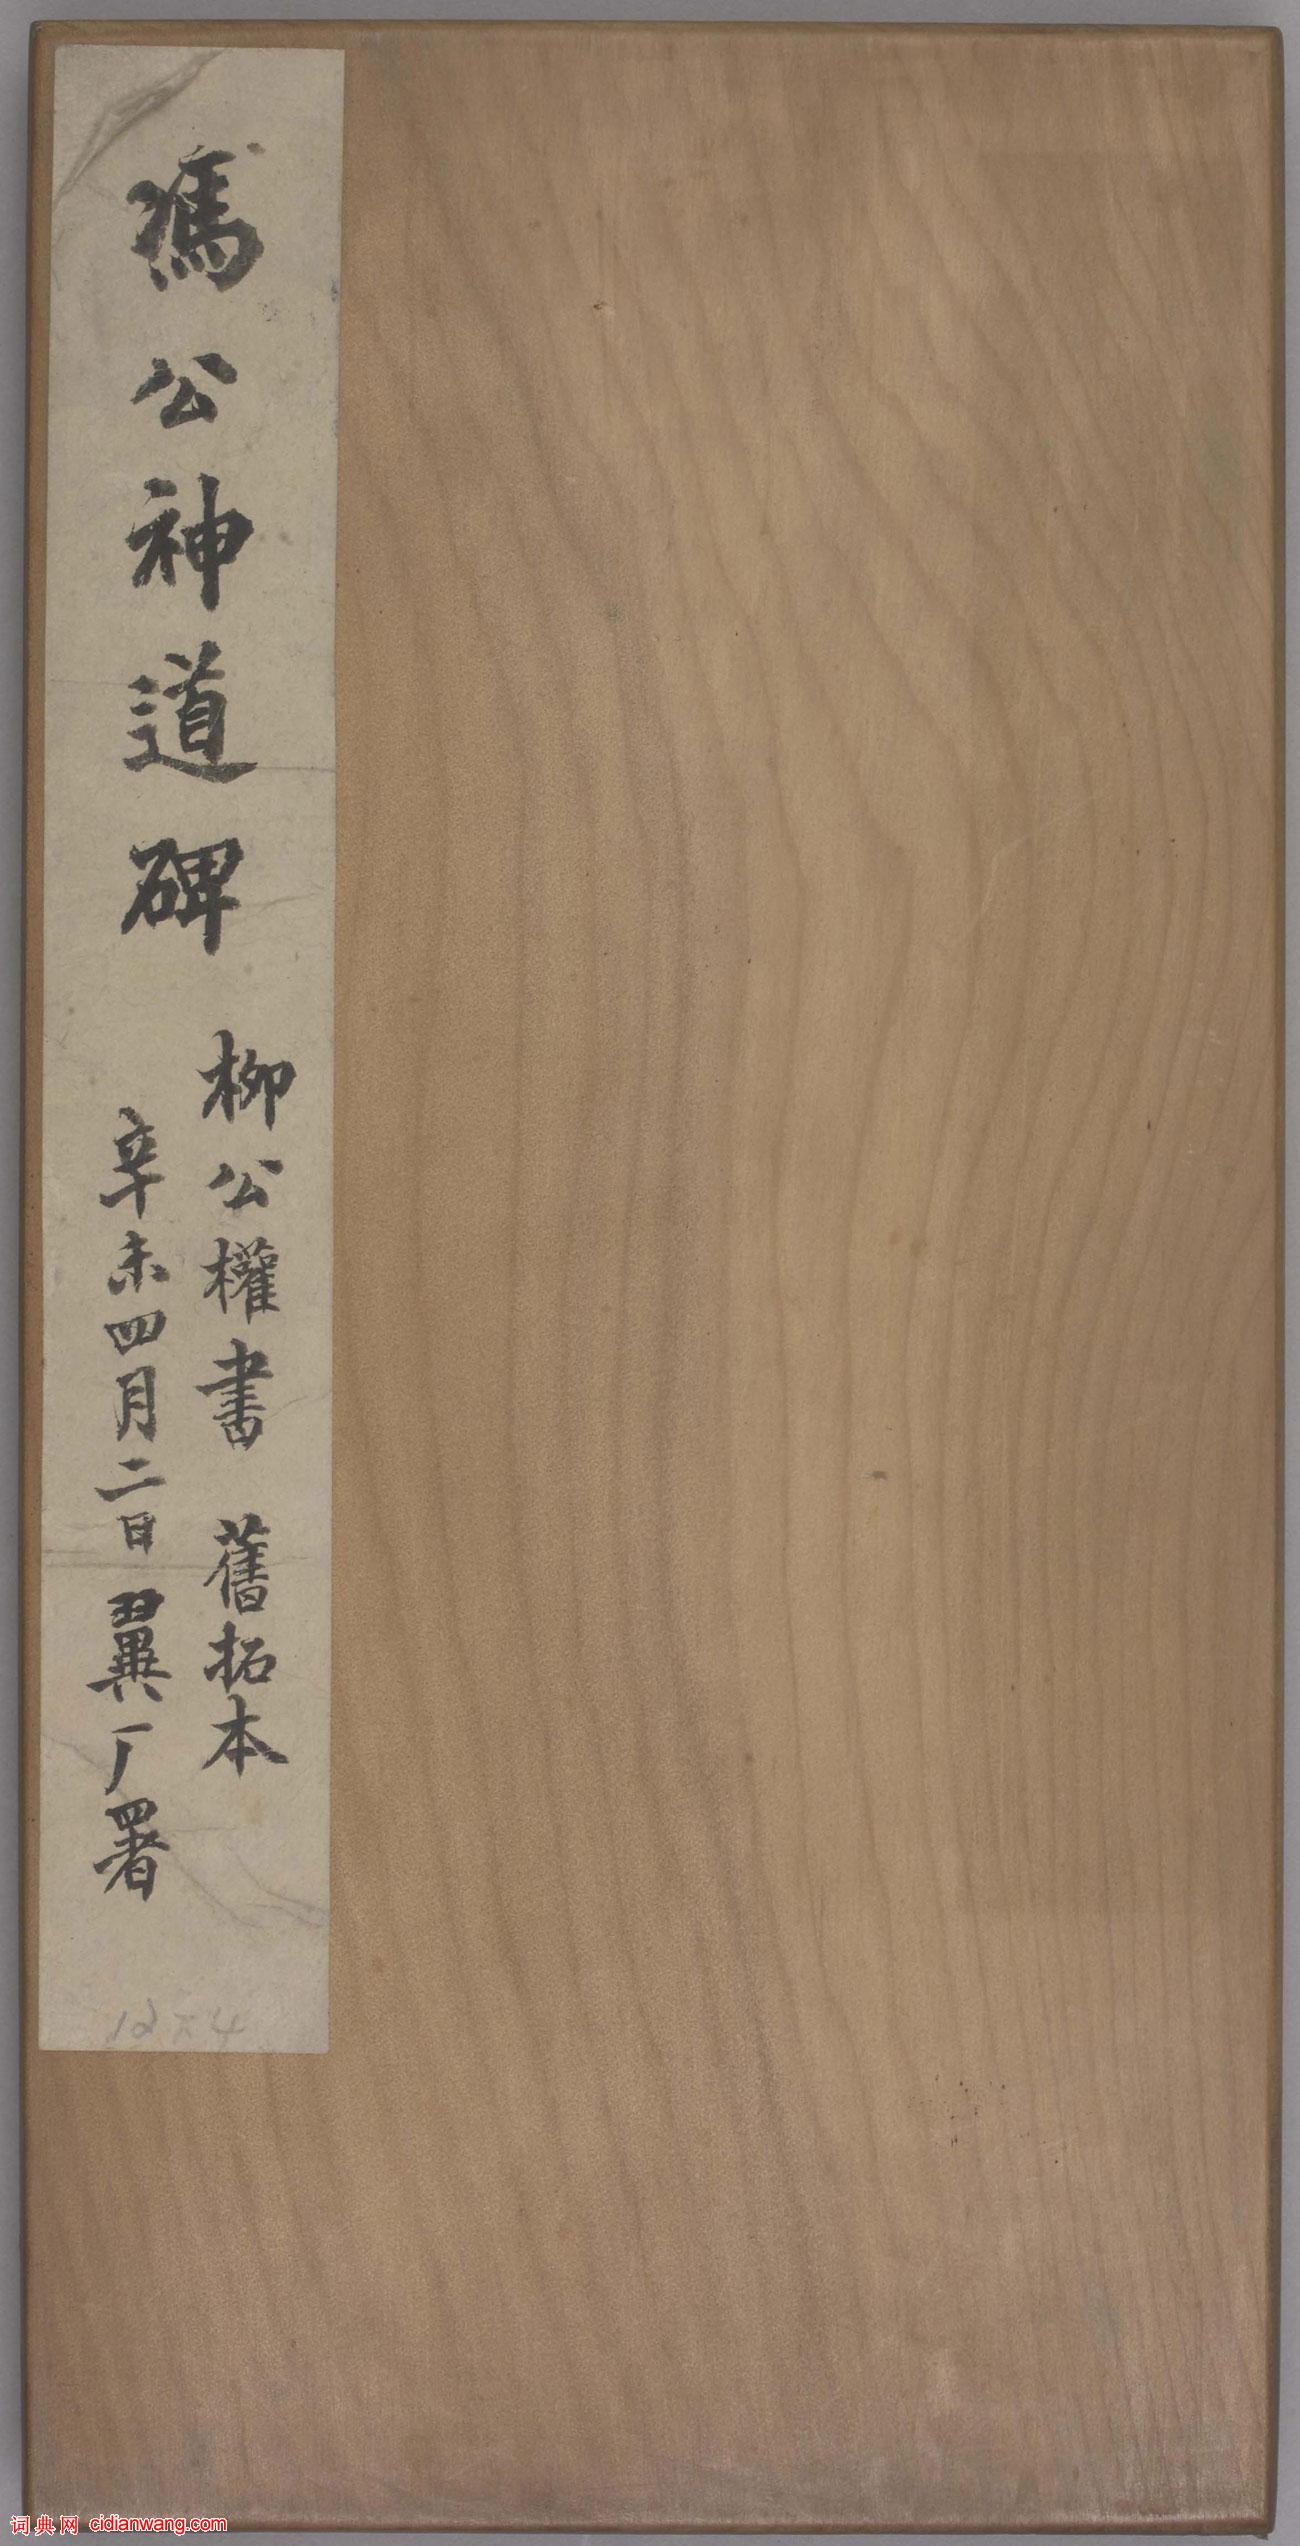 馮公神道碑
柳公權書 舊拓本
辛未四月二日 翼厂署
词典网 cidianwang.com